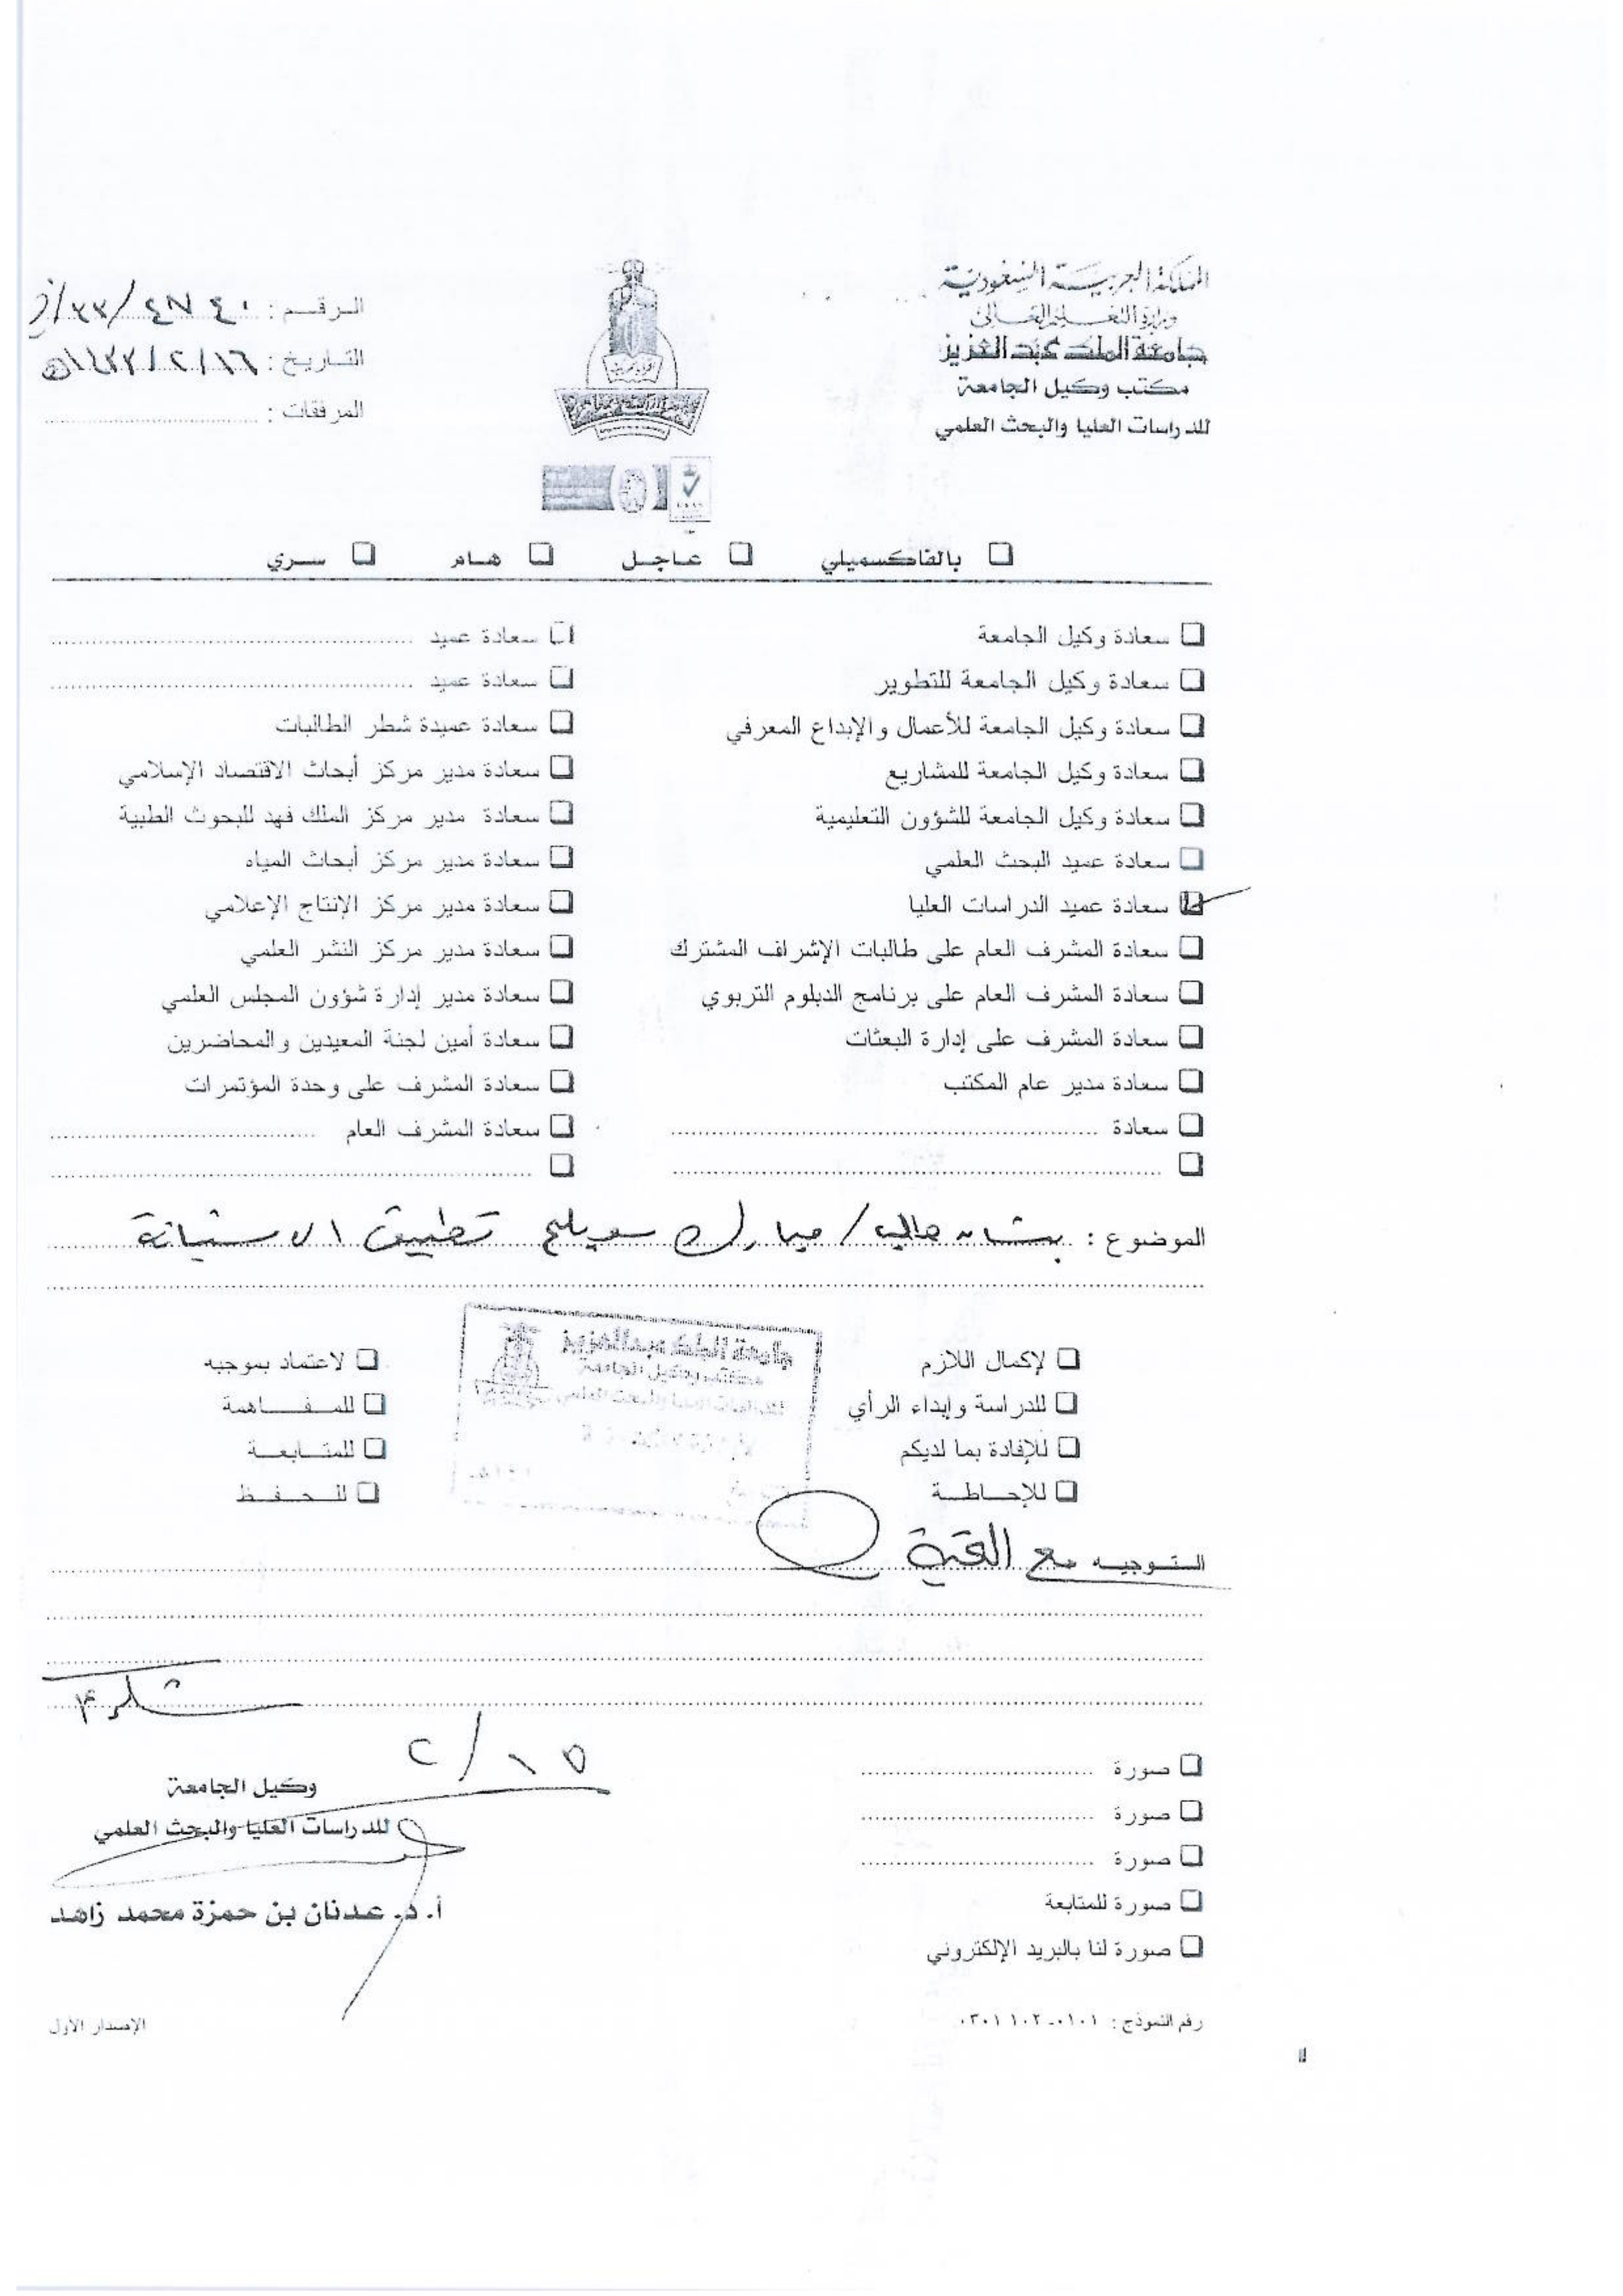 المملكة العربية السعودية
وزارة التعليم العالي
جامعة الملك عبد العزيز
مكتب وكيل الجامعة
للدراسات العليا والبحث العلمي
الرقم :
التاريخ : ١٦/٢/
المرفقات :
بالفاكسميلي عاجل هام سري
سعادة وكيل الجامعة
سعادة وكيل الجامعة للتطوير
سعادة وكيل الجامعة للأعمال والإبداع المعرفي
سعادة وكيل الجامعة للمشاريع
سعادة وكيل الجامعة للشؤون التعليمية
سعادة عميد البحث العلمي
سعادة عميد الدراسات العليا
سعادة المشرف العام على طالبات الإشراف المشترك
سعادة المشرف العام على برنامج الدبلوم التربوي
سعادة المشرف على إدارة البعثات
سعادة مدير عام المكتب
سعادة
سعادة عميد
سعادة عميد
سعادة عميدة شطر الطالبات
سعادة مدير مركز أبحاث الاقتصاد الإسلامي
سعادة مدير مركز الملك فهد للبحوث الطبية
سعادة مدير مركز أبحاث المياه
سعادة مدير مركز الإنتاج الإعلامي
سعادة مدير مركز النشر العلمي
سعادة مدير إدارة شؤون المجلس العلمي
سعادة أمين لجنة المعيدين والمحاضرين
سعادة المشرف على وحدة المؤتمرات
سعادة المشرف العام
الموضوع : بشأن / مبارك سويلم تطبيق الاستبانة
لإكمال اللازم
للدراسة وإبداء الرأي
للإفادة بما لديكم
للإحاطة
لاعتماد بموجبه
للمفاهمة
للمتابعة
للحفظ
جامعة الملك عبدالعزيز
التوجيه مع التحية
٢/١٥
وكيل الجامعة
للدراسات العليا والبحث العلمي
أ. د. عدنان بن حمزة محمد زاهد
صورة
صورة
صورة
صورة للمتابعة
صورة لنا بالبريد الإلكتروني
رقم النموذج : ٠١٠١-١٠٢ ٠٣٠١
الإصدار الأول